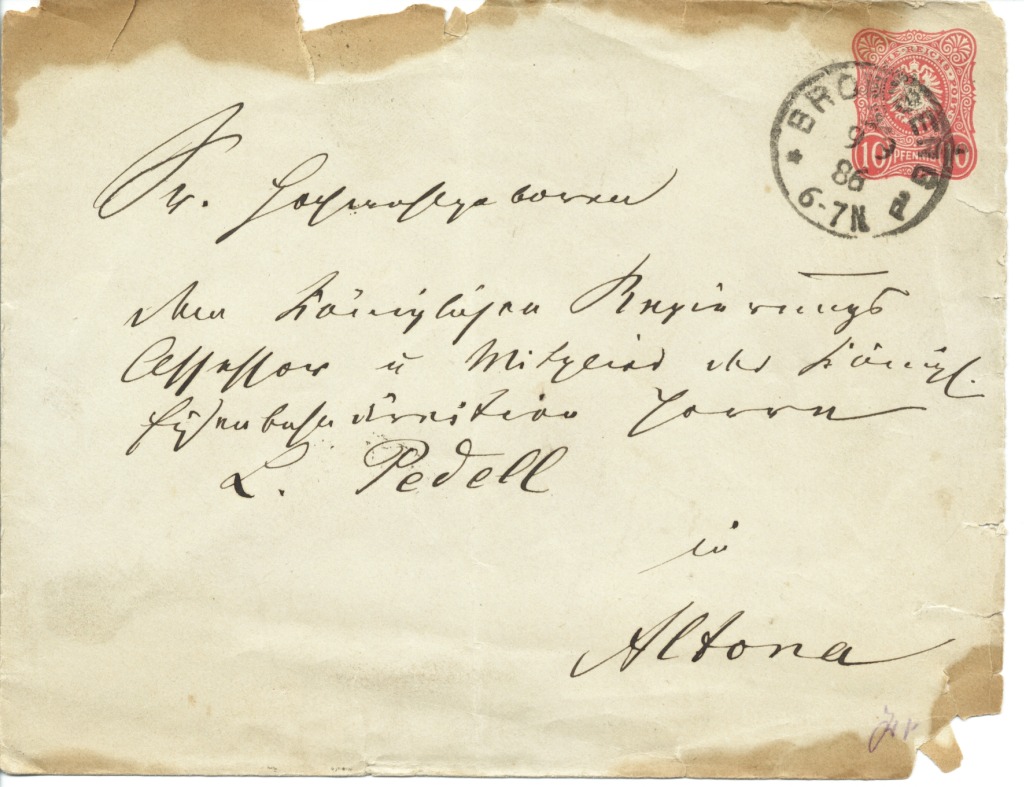 REICHS-POST
BROMBERG
9 9
86
6-7N
10 PFENNIG
Sr. Hochwohlgeboren
dem Königlichen Regierungs
Assessor u Mitglied der Königl.
Eisenbahndirection Herrn
L. Pedell
in
Altona